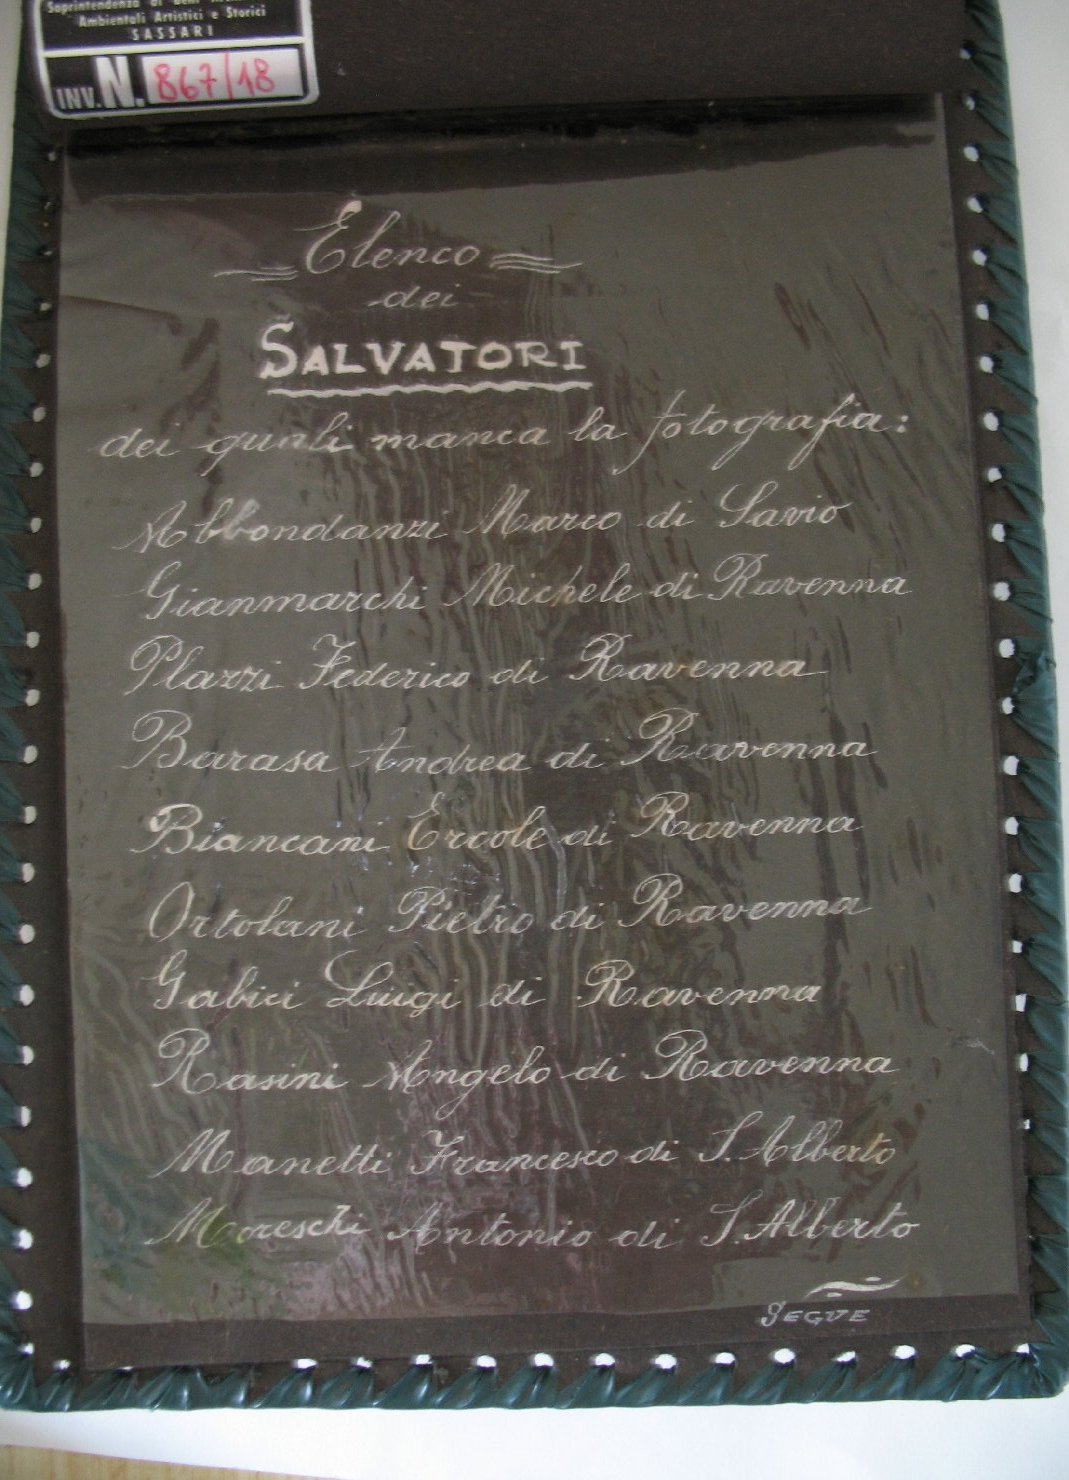 Soprintendenza ai Beni
Ambientali Artistici e Storici
SASSARI
INV. N. 867/18
Elenco
dei
SALVATORI
dei quali manca la fotografia:
Abbondanzi Marco di Savio
Gianmarchi Michele di Ravenna
Plazzi Federico di Ravenna
Barasa Andrea di Ravenna
Biancani Ercole di Ravenna
Ortolani Pietro di Ravenna
Gabici Luigi di Ravenna
Rasini Angelo di Ravenna
Manetti Francesco di S. Alberto
Moreschi Antonio di S. Alberto
SEGUE